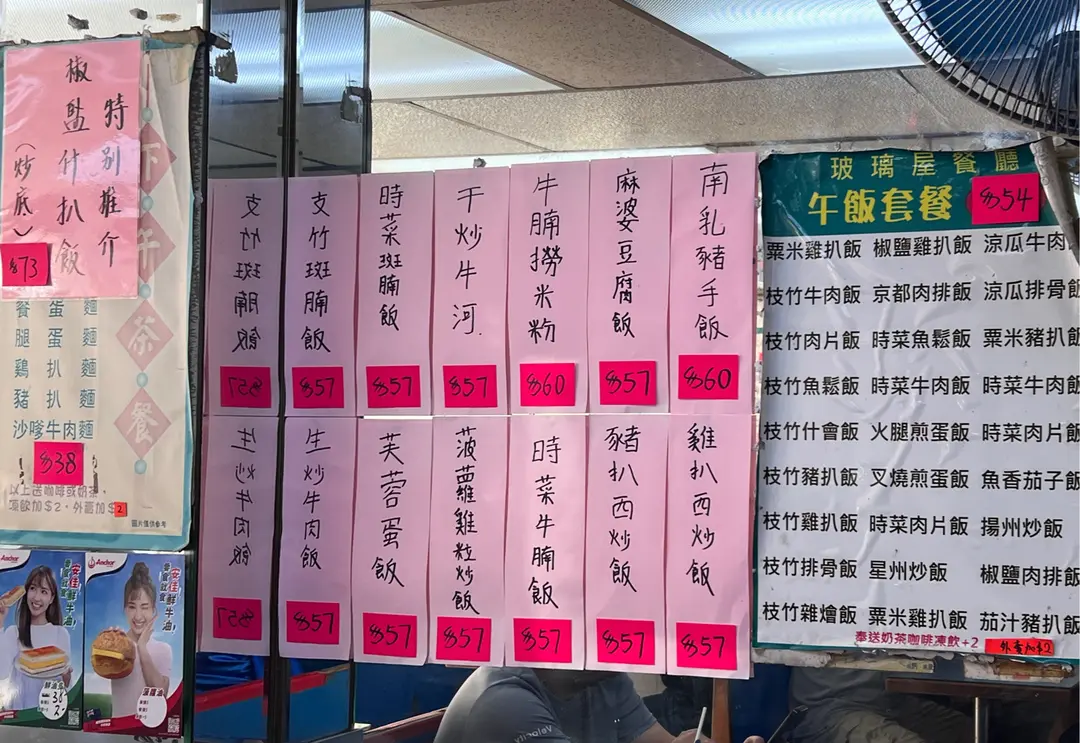 特别推介
椒盐什扒飯
(炒底)
$73
下午茶餐
餐蛋麵
腿蛋麵
鷄扒麵
豬扒麵
沙嗲牛肉麵
$38
以上送咖啡或奶茶,
凍飲加$2，外賣加$2
圖片僅供參考
Anchor
安佳鮮牛油!
Anchor
安佳鮮牛油!
南乳豬手飯
$60
麻婆豆腐飯
$57
牛腩撈米粉
$60
干炒牛河
$57
時菜斑腩飯
$57
支竹斑腩飯
$57
雞扒西炒飯
$57
豬扒西炒飯
$57
時菜牛腩飯
$57
菠蘿雞粒炒飯
$57
芙蓉蛋飯
$57
生炒牛肉飯
$57
玻璃屋餐廳
午飯套餐 $54
粟米雞扒飯 椒鹽雞扒飯 涼瓜牛肉
枝竹牛肉飯 京都肉排飯 涼瓜排骨飯
枝竹肉片飯 時菜魚鬆飯 粟米豬扒飯
枝竹魚鬆飯 時菜牛肉飯 時菜牛肉飯
枝竹什會飯 火腿煎蛋飯 時菜肉片飯
枝竹豬扒飯 叉燒煎蛋飯 魚香茄子飯
枝竹雞扒飯 時菜肉片飯 揚州炒飯
枝竹排骨飯 星州炒飯 椒鹽肉排飯
枝竹雜燴飯 粟米雞扒飯 茄汁豬扒飯
奉送奶茶咖啡凍飲+2 外賣加$2